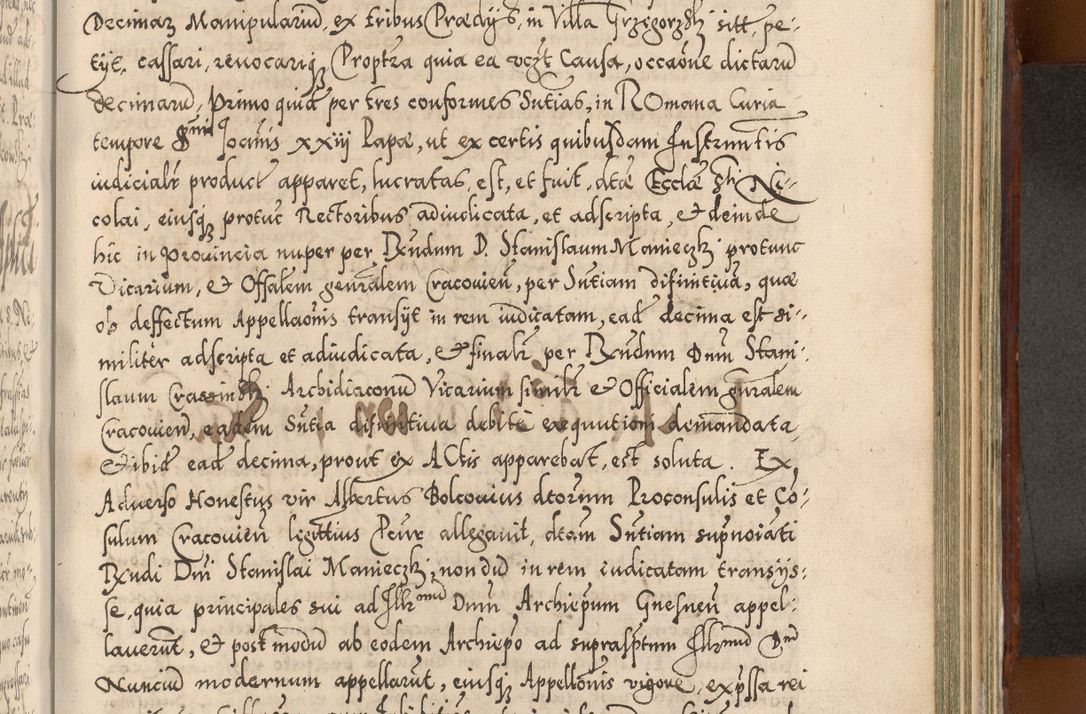 Decimaȝ Manipulariũ, ex tribus Prædijs, in Villa Grzegorzky sitt, pe-
tijt, cassari, revocariq; Proptra quia ea vcȝt Causa, occaõne dictarũ
decimarũ, Primo quidẽ per tres conformes Sñtias, in ROmana Curia
tempore Sᵐⁱ Joañis XXiij Papæ, ut ex certis quibusdam Instrum̃tis
iudicialr̃ product̃ apparet, lucratas, est, et fuit, dtæ Ecclæ Sᵗⁱ Ni-
colai, eiusq; protũc Rectoribus adiudicata, et adscripta, & deinde
hic in Prouincia nuper per Rx̃ndum D. Stanislaum Manieczki protunc
Vicarium, & Offalem geñralem Cracouieñ, per Sñtiam difinitiuã, quæ
ob deffectum Appellaõnis transijt in rem iudicatam, eadẽ decima est si-
militer adscripta et adiudicata, & finalr̃ per Rx̃ndum Dnũ Stani-
slaum Crassinski Archidiaconũ Vicarium similr̃ & Officialem gñralem
Cracouieñ, eadem Sñtia difinitiua debitè exequutioni demandata,
& ibidẽ eadẽ decima, prout ex ACtis apparebat, est soluta. Ex
Aduerso Honestus vir Albertus Bolcouius dtorum Proconsulis et Co-
sulum Cracouieñ legittius Pcur̃ allegauit, dtam Sñtiam supnoiati
Rx̃ndi Dñi Stanislai Manieczki, nondũ in rem iudicatam transijs-
se, quia principales sui ad Illrᵐᵘᵐ Dnũ Archiepum Gnesneñ appel-
lauerũt, & postmodũ ab eodem Archiepo ad suprasp̃tum Illrᵐᵘᵐ Dⁿᵘᵐ
Nunciũ modernum appellarũt, eiusq; Appellonis vigore, exp̃ssa rei